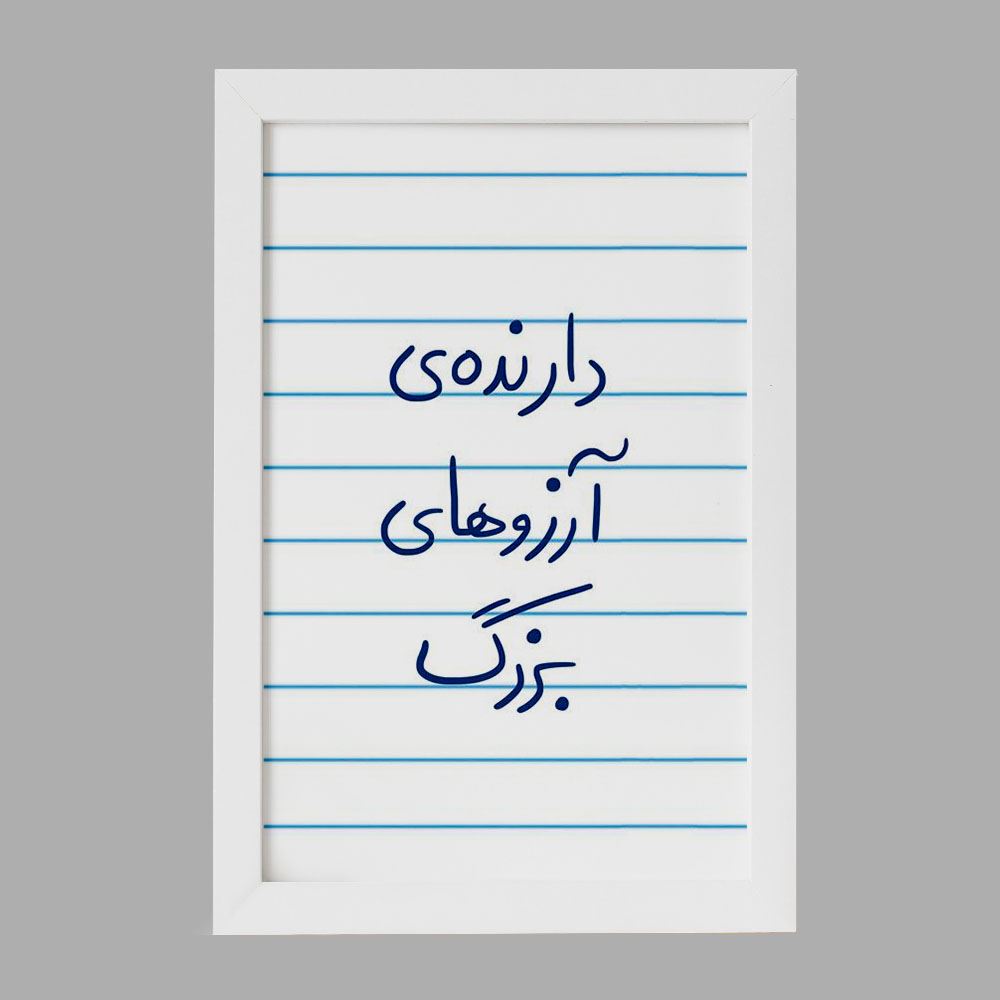 دارنده‌ی
آرزوهای
بزرگ